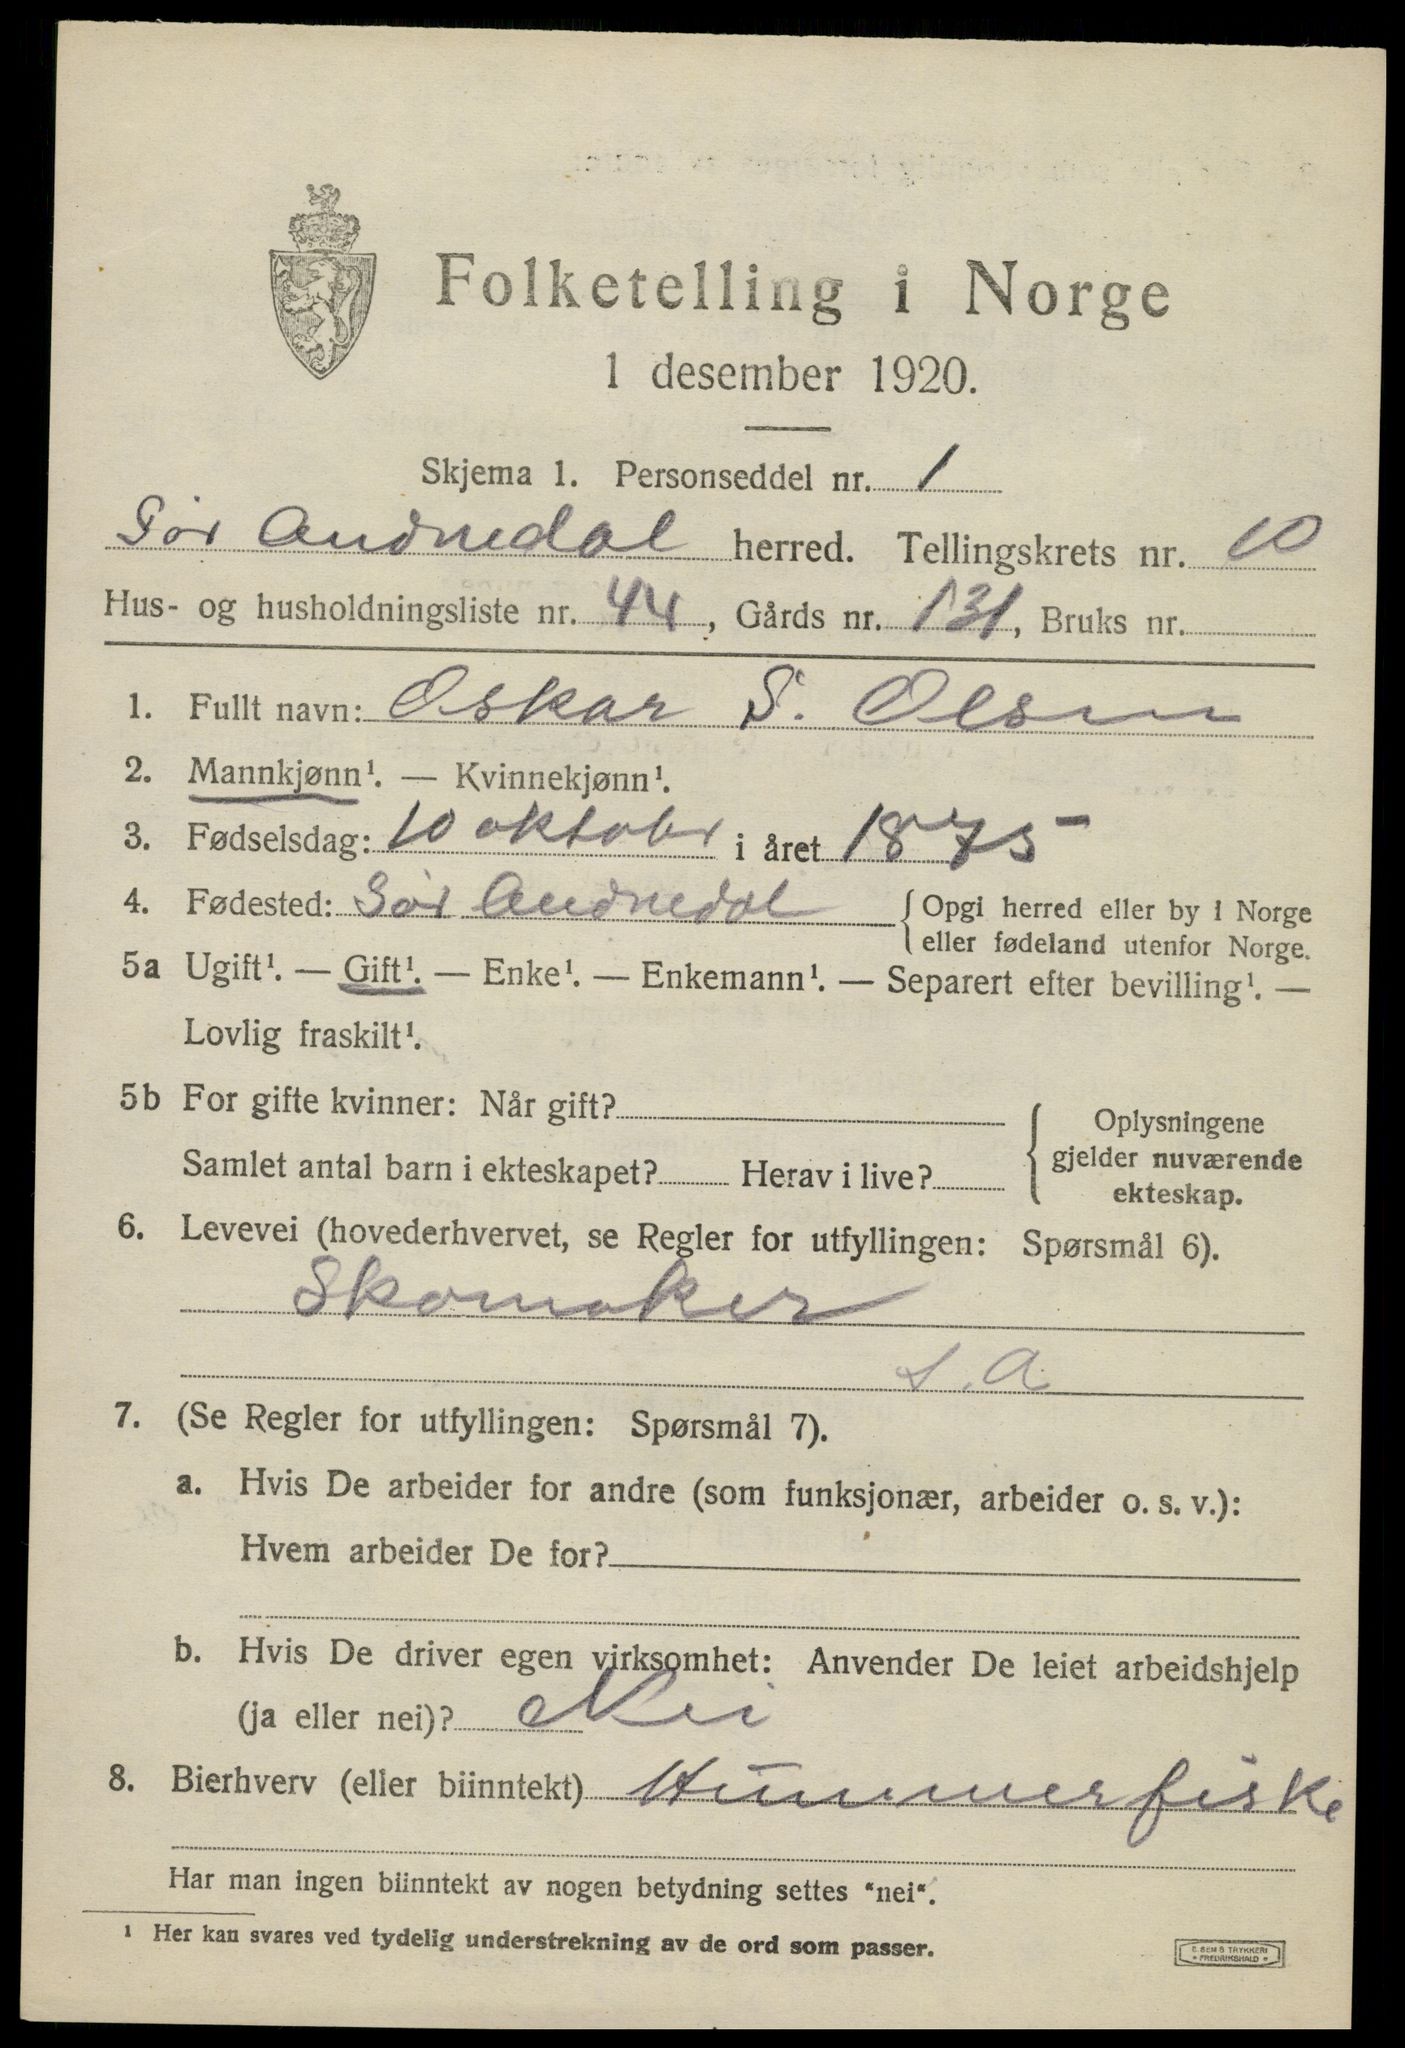 Folketelling i Norge
1 desember 1920.
Skjema 1. Personseddel nr. 1
Sør Audnedal herred. Tellingskrets nr. 10
Hus- og husholdningsliste nr. 44, Gårds nr. 131, Bruks nr.
1. Fullt navn: Oskar S. Olsen
2. Mannkjønn¹. — Kvinnekjønn¹.
3. Fødselsdag: 10 oktober i året 1875
4. Fødested: Sør Audnedal { Opgi herred eller by i Norge
eller fødeland utenfor Norge.
5a Ugift¹. — Gift¹. — Enke¹. — Enkemann¹. — Separert efter bevilling¹. —
Lovlig fraskilt¹.
5b For gifte kvinner: Når gift? { Oplysningene
Samlet antal barn i ekteskapet? Herav i live? gjelder nuværende
ekteskap.
6. Levevei (hovederhvervet, se Regler for utfyllingen: Spørsmål 6).
Skomaker
S. A
7. (Se Regler for utfyllingen: Spørsmål 7).
a. Hvis De arbeider for andre (som funksjonær, arbeider o. s. v.):
Hvem arbeider De for?
b. Hvis De driver egen virksomhet: Anvender De leiet arbeidshjelp
(ja eller nei)? Nei
8. Bierhverv (eller biinntekt) Hummerfiske
Har man ingen biinntekt av nogen betydning settes "nei".
¹ Her kan svares ved tydelig understrekning av de ord som passer.
E. SEMS TRYKKERI
FREDRIKSHALD